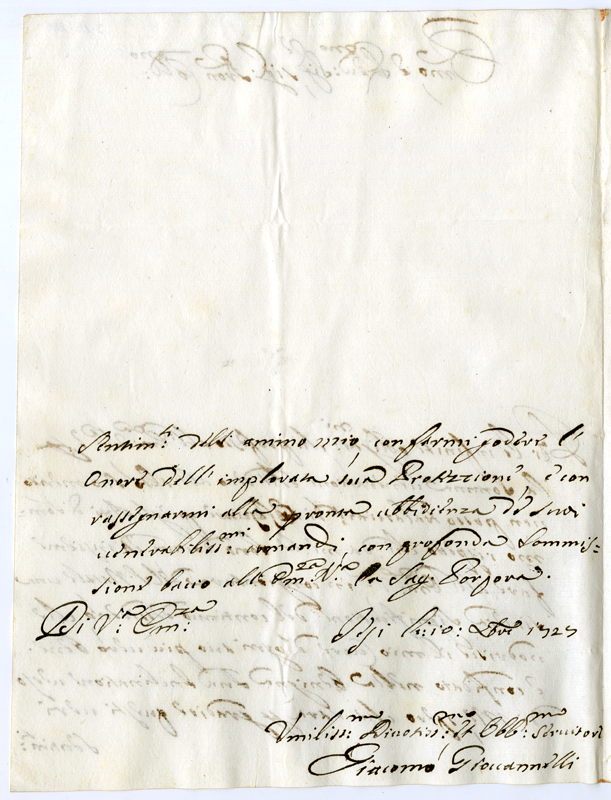 Sentim.ti dell'animo mio, con farmi godere l'
Onore dell'implorata sua Protezzione, e con
rassegnarmi alla pronta ubbidienza de suoi
venerabiliss.mi comandi, con profonda sommis-
sione bacio all'Em.za V.a la Sag. Porpora.
Di V.a Em.za
Jesi li: 10: Xbre 1727
Umiliss.mo Devotiss.mo et Obb.mo Servitore
Giacomo Giovannelli